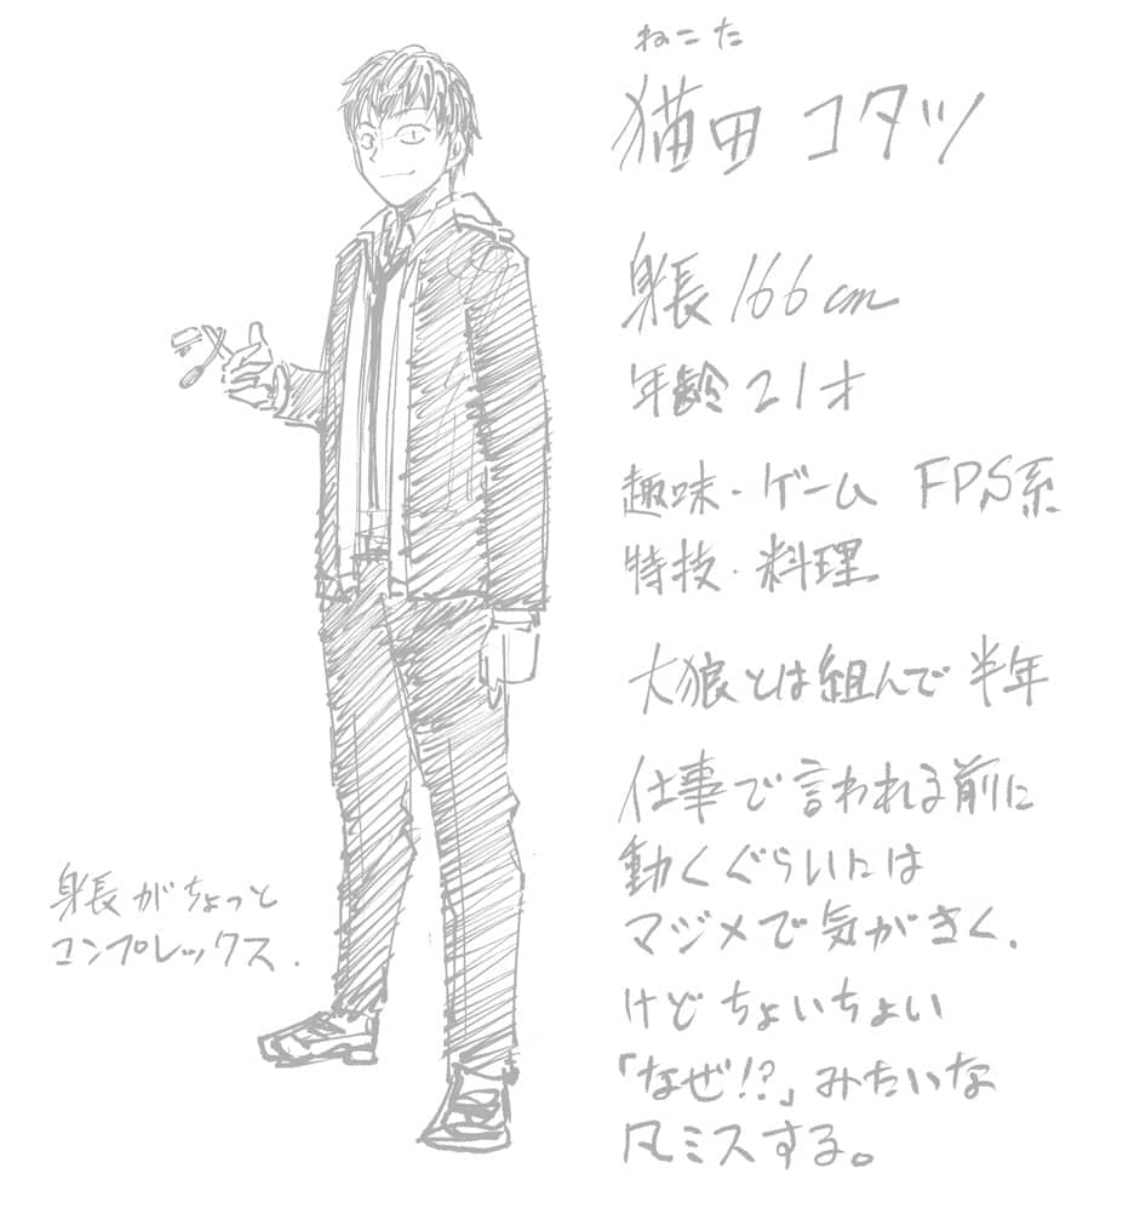 ねこた
猫田 コタツ
身長 166cm
年齢 21才
趣味・ゲーム FPS系
特技・料理
大狼とは組んで半年
仕事で言われる前に
動くぐらいには
マジメで気がきく.
けどちょいちょい
「なぜ!?」みたいな
凡ミスする。
身長がちょっと
コンプレックス.